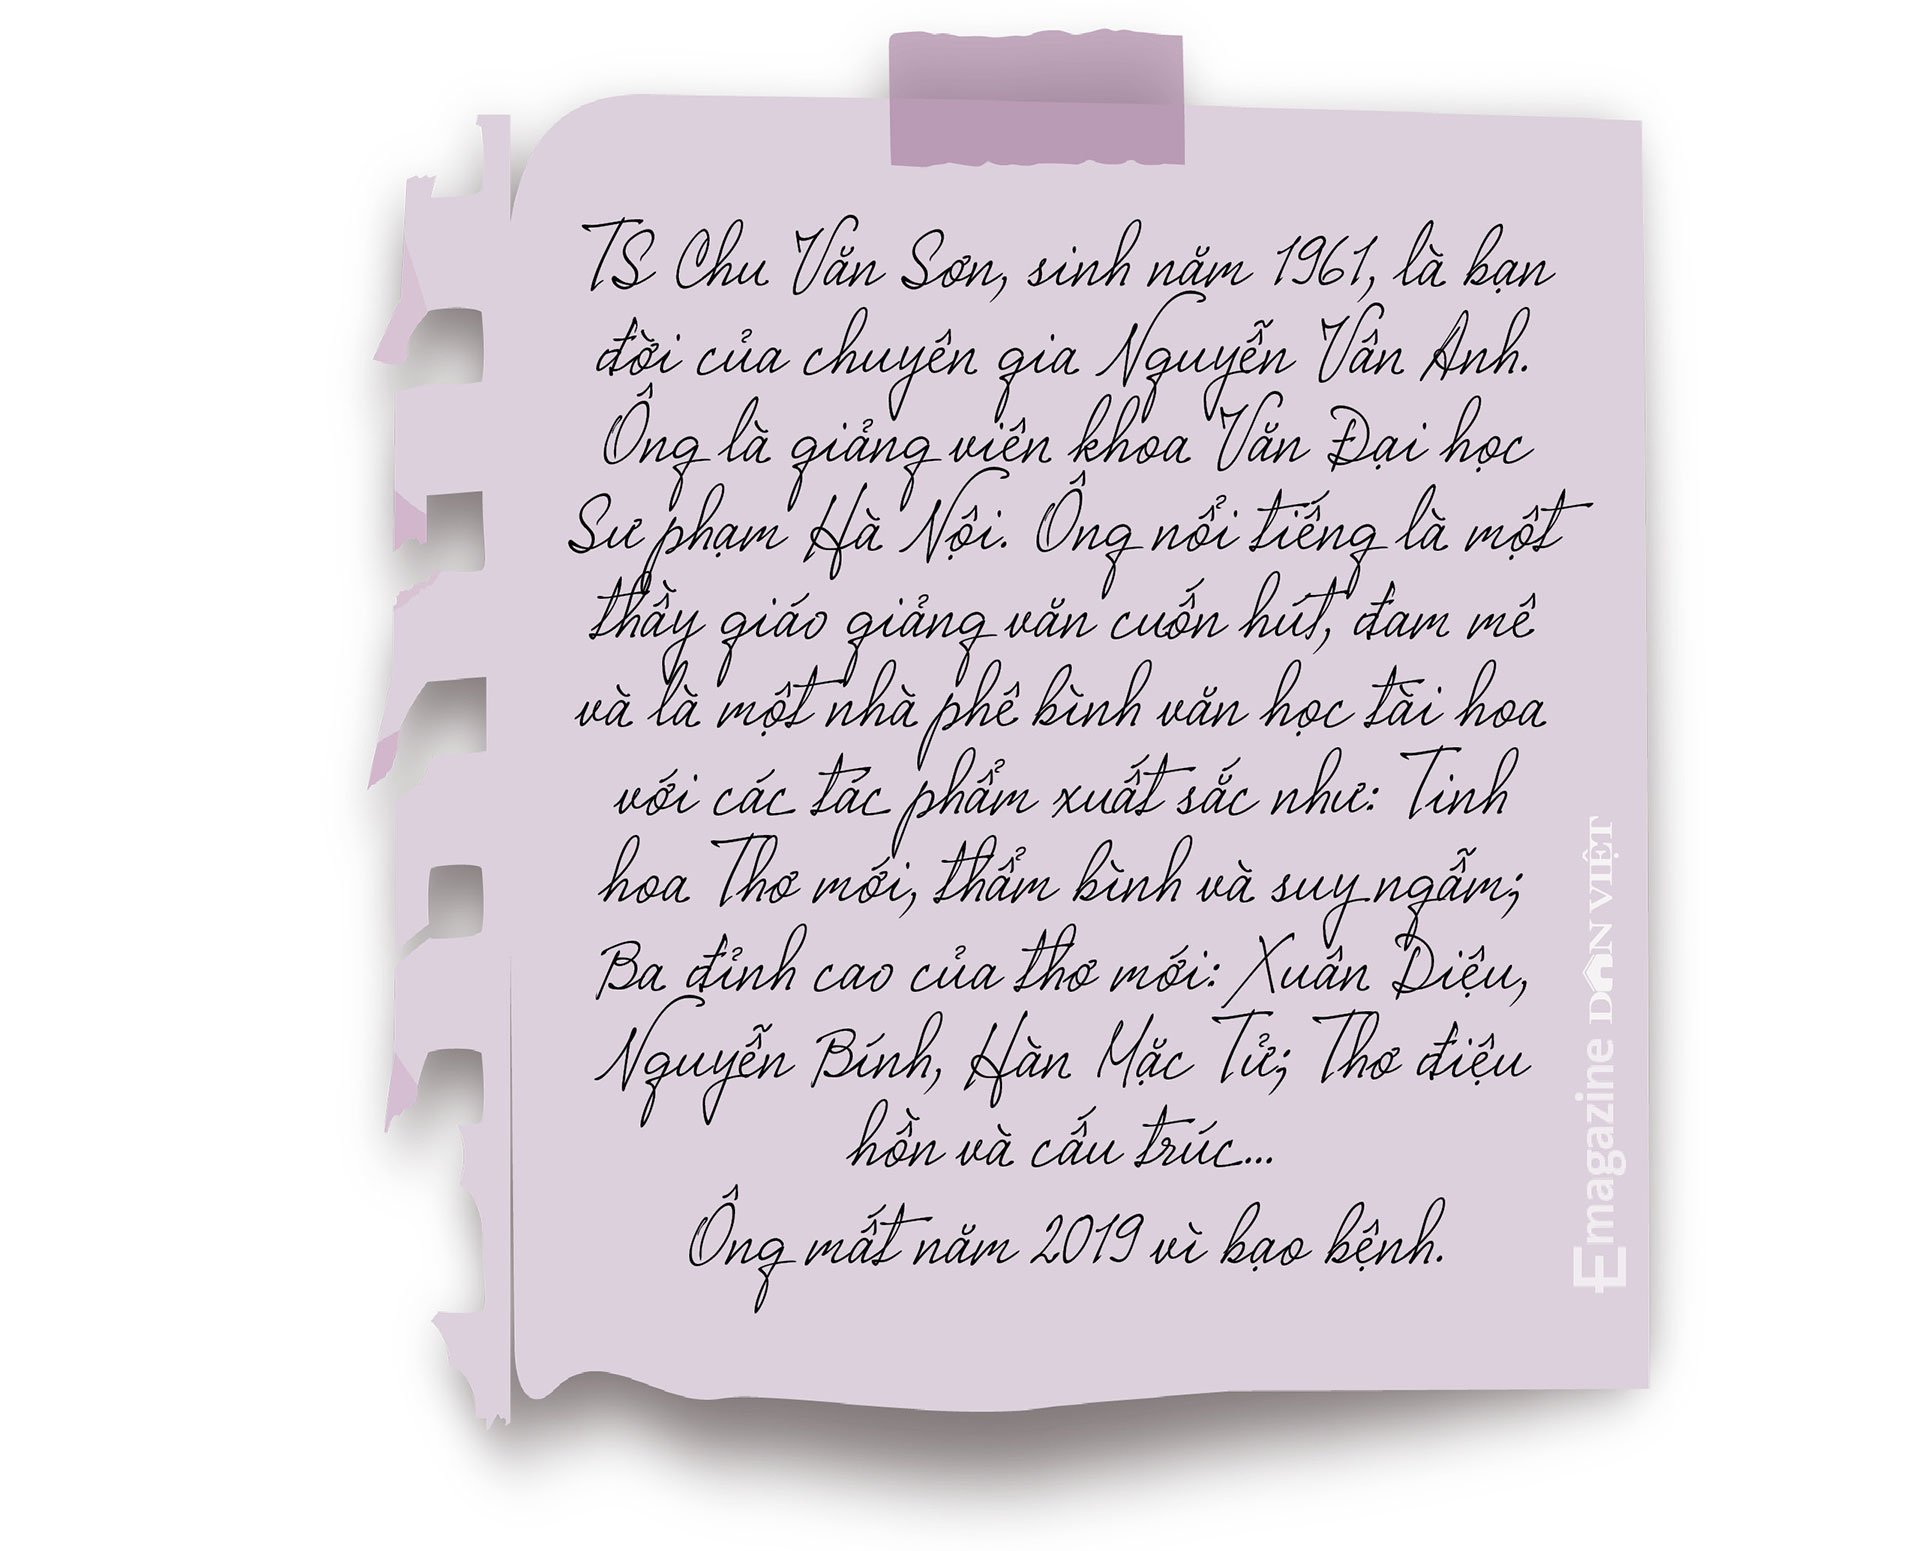 TS Chu Văn Sơn, sinh năm 1961, là bạn
đời của chuyên gia Nguyễn Vân Anh.
Ông là giảng viên khoa Văn Đại học
Sư phạm Hà Nội. Ông nổi tiếng là một
thầy giáo giảng văn cuốn hút, đam mê
và là một nhà phê bình văn học tài hoa
với các tác phẩm xuất sắc như: Tinh
hoa Thơ mới, thẩm bình và suy ngẫm;
Ba đỉnh cao của thơ mới: Xuân Diệu,
Nguyễn Bính, Hàn Mặc Tử; Thơ điệu
hồn và cấu trúc...
Ông mất năm 2019 vì bạo bệnh.
Emagazine DÂN VIỆT